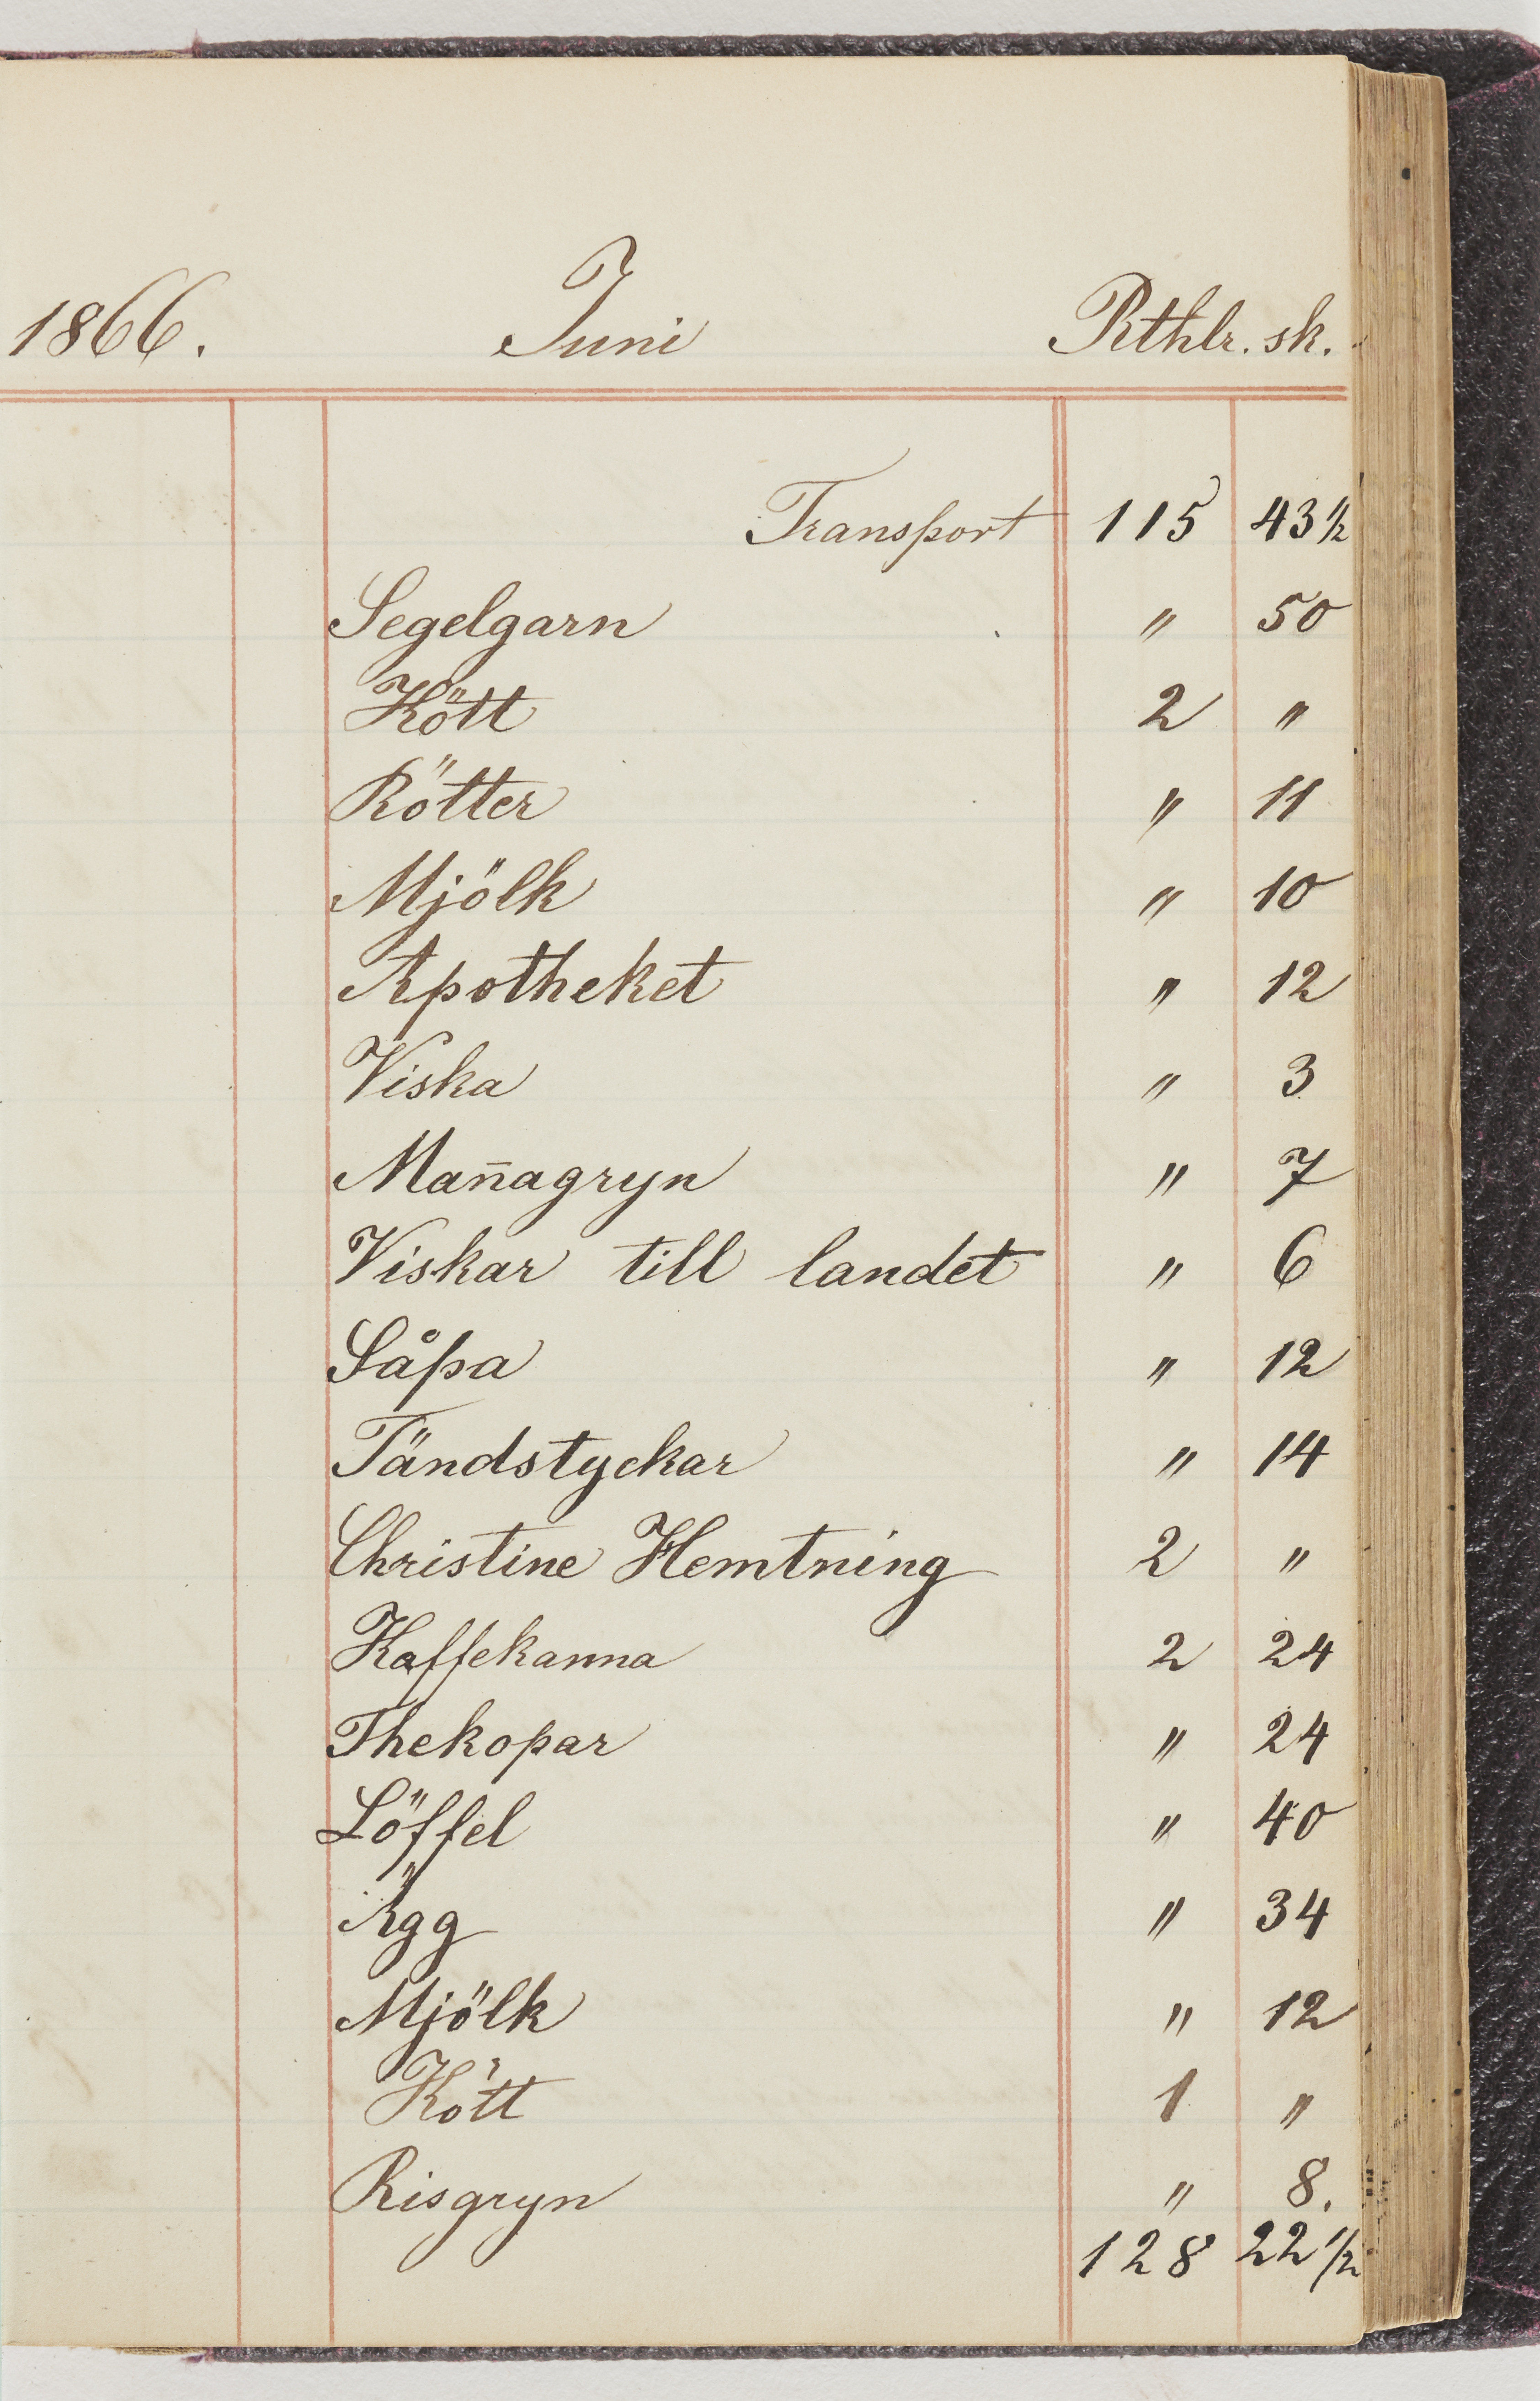 1866. Juni Rthlr. sk.
Transport 115 43 1/2
Segelgarn " 50
Kött 2 "
Rötter " 11
Mjölk " 10
Apotheket " 12
Viska " 3
Man̄agryn " 7
Viskar till landet " 6
Såpa " 12
Tändstyckar " 14
Christine Hemtning 2 "
Kaffekanna 2 24
Thekopar " 24
Löffel " 40
Ägg " 34
Mjölk " 12
Kött 1 "
Risgryn " 8.
128 22 1/2